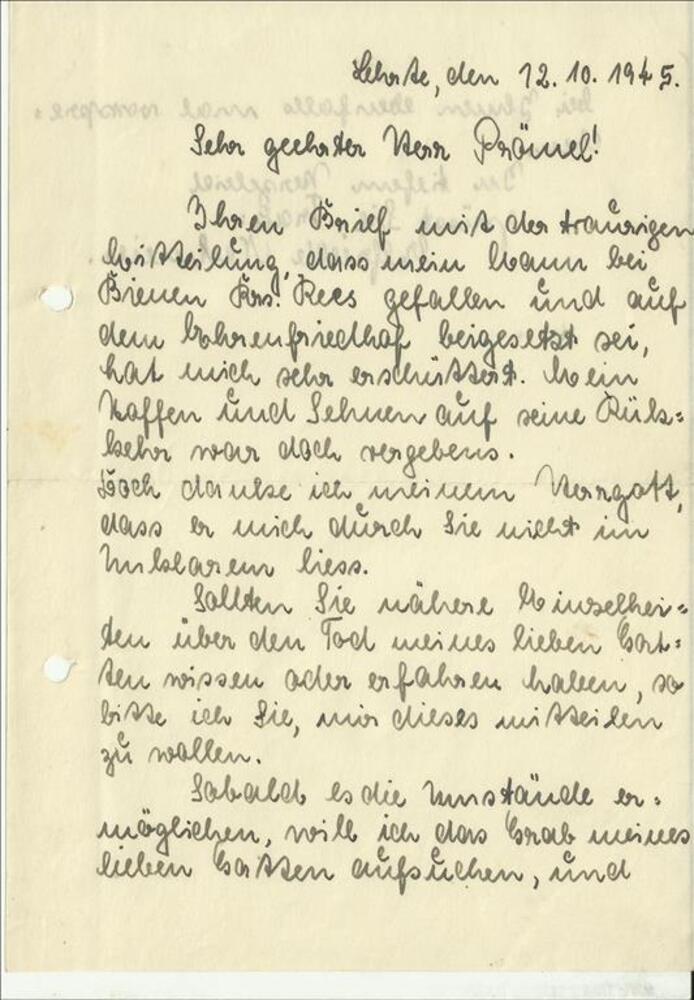 Lehrte, den 12.10.1945.
Sehr geehrter Herr Prömel!
Ihren Brief mit der traurigen
Mitteilung, dass mein Mann bei
Bienen Krs. Rees gefallen und auf
dem Ehrenfriedhof beigesetzt sei,
hat mich sehr erschüttert. Mein
Hoffen und Sehnen auf seine Rük=
kehr war doch vergebens.
Doch danke ich meinem Herrgott,
dass er mich durch Sie nicht im
Unklarem liess.
Sollten Sie nähere Einzelhei=
ten über den Tod meines lieben Gat=
ten wissen oder erfahren haben, so
bitte ich Sie, mir dieses mitteilen
zu wollen.
Sobald es die Umstände er=
möglichen, will ich das Grab meines
lieben Gatten aufsuchen, und